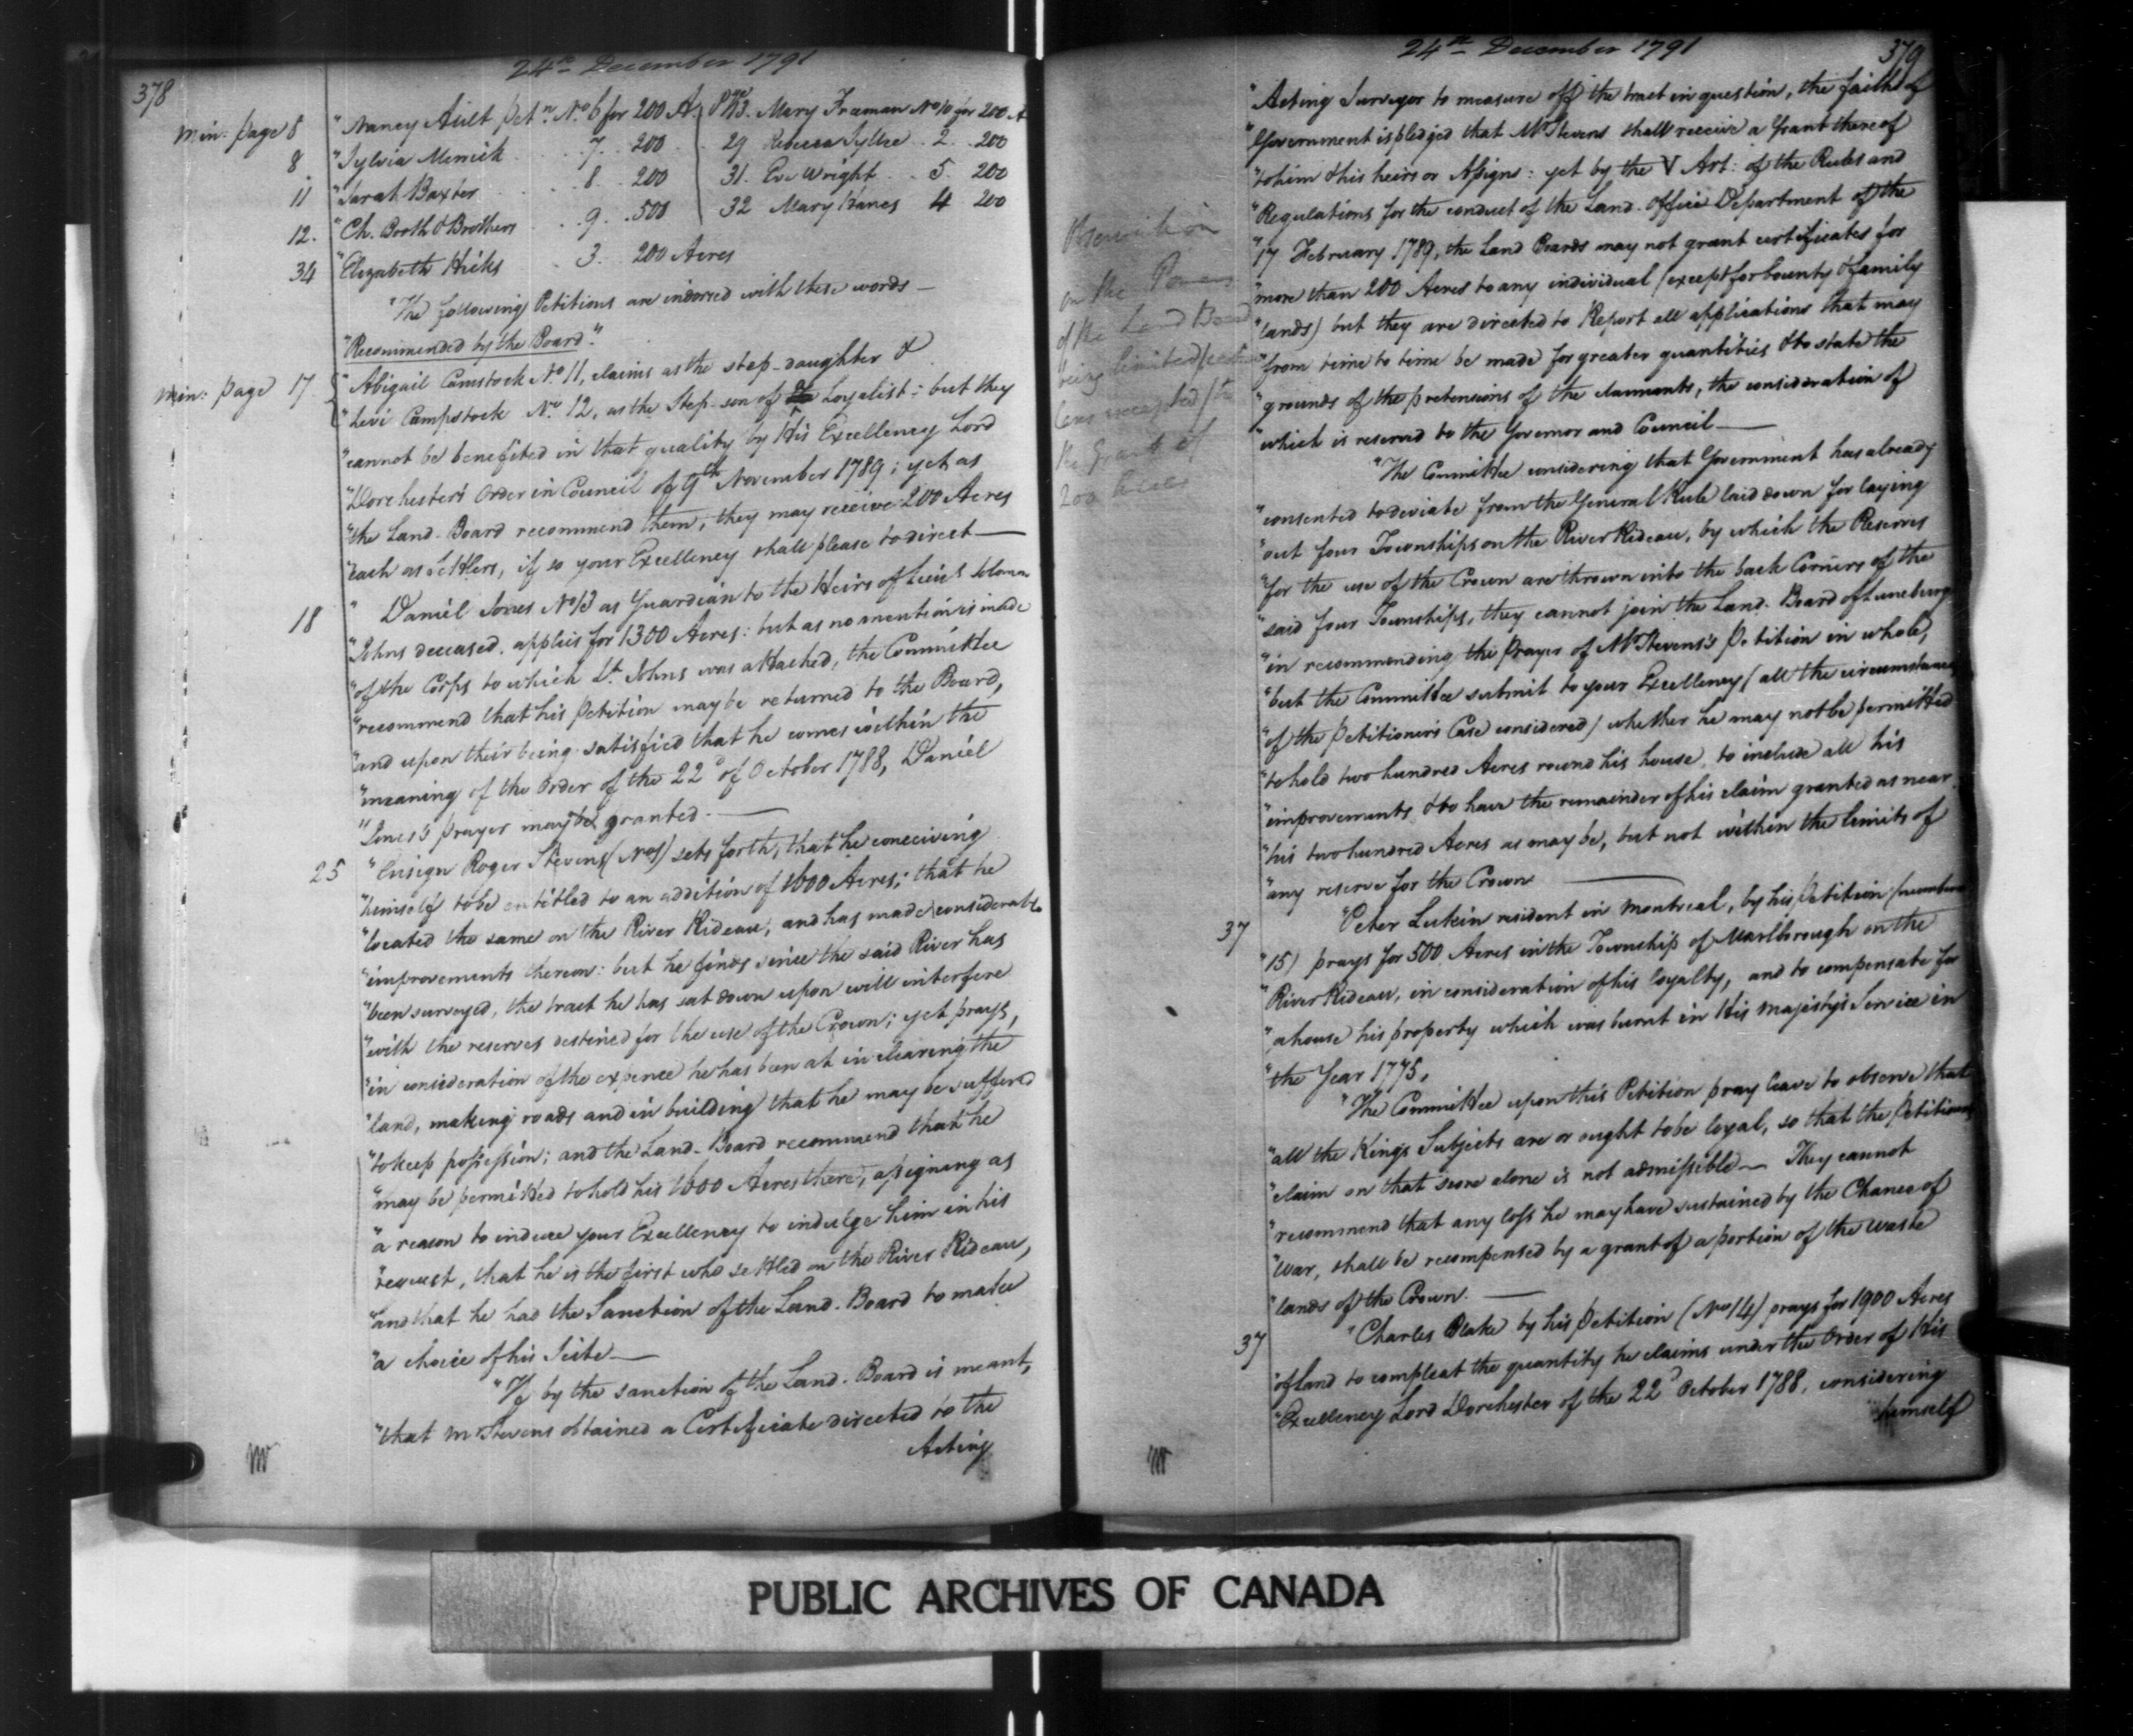 378
24th December 1791
Min: page 8 "Nancy Ault Petn. No. 6 for 200 A. Pge 33. Mary Freeman No 10 for 200 A
8 "Sylvia Merrick 7. 200 29 Rebecca 2. 200
11 "Sarah Baxter 8. 200 31. Eve Wright 5. 200
12. "Ch. Booth & Brothers 9. 500 32 Mary Hanes 4 200
34 "Elizabeth Hicks 3. 200 Acres
"The following Petitions are indorsed with these words—
"Recommended by the Board".
Min: page 17 "Abigail Comstock No. 11, claims as the step-daughter &
"Levi Campstock No. 12, as the Step-son of Loyalist: but they
"cannot be benefited in that quality by His Excellency Lord
"Dorchester's Order in Council of 9th November 1789; yet as
"the Land-Board recommend them, they may receive 200 Acres
"each as Settlers, if so your Excellency shall please to direct—
18 " Daniel Jones No 13 as Guardian to the Heirs of Lieut Solomon
"Johns deceased, applies for 1300 Acres: but as no mention is made
"of the Corps to which Lt. Johns was attached, the Committee
"recommend that his Petition may be returned to the Board,
"and upon their being satisfied that he comes within the
"meaning of the Order of the 22d of October 1788, Daniel
"Jones's prayer may be granted.—
25 "Ensign Roger Stevens (No 1) sets forth, that he conceiving
"himself to be entitled to an addition of 1600 Acres; that he
"located the same on the River Rideau, and has made considerable
"improvements thereon: but he finds since the said River has
"been surveyed, the tract he has sat down upon will interfere
"with the reserves destined for the use of the Crown; yet prays,
"in consideration of the expence he has been at in clearing the
"land, making roads and in building that he may be suffered
"to keep possession; and the Land-Board recommend that he
"may be permitted to hold his 1600 Acres there, assigning as
"a reason to induce your Excellency to indulge him in his
"request, that he is the first who settled on the River Rideau,
"and that he had the Sanction of the Land-Board to make
"a choice of his Scite—
"If by the sanction of the Land-Board is meant,
"that Mr Stevens obtained a Certificate directed to the
Acting
24th December 1791
379
"Acting Surveyor to measure off the tract in question, the faith of
"Government is pledged that Mr Stevens shall receive a Grant thereof
"to him & his heirs or Assigns: yet by the V Art: of the Rules and
"Regulations for the conduct of the Land-Office Department of the
"17 February 1789, the Land Boards may not grant certificates for
"more than 200 Acres to any individual (except for bounty & family
"lands) but they are directed to Report all applications that may
"from time to time be made for greater quantities & to state the
"grounds of the pretensions of the claimants, the consideration of
"which is reserved to the Governor and Council—
on the Powers
of the Land Board
being limited
the Grant of
200 Acres
"The Committee considering that Government has already
"consented to deviate from the General Rule laid down for laying
"out four Townships on the River Rideau, by which the Reserves
"for the use of the Crown are thrown into the back Corners of the
"said four Townships, they cannot join the Land-Board of Luneburg
"in recommending the Prayer of Mr Stevens's Petition in whole,
"but the Committee submit to your Excellency (all the circumstances
"of the Petitioner's Case considered) whether he may not be permitted
"to hold two hundred Acres round his house, to include all his
"improvements, & to have the remainder of his claim granted as near
"his two hundred Acres as may be, but not within the limits of
"any reserve for the Crown—
37 "Peter Lukin resident in Montreal, by his Petition (number
"15) prays for 500 Acres in the Township of Marlborough on the
"River Rideau, in consideration of his loyalty, and to compensate for
"a house his property which was burnt in His Majesty's Service in
"the Year 1775.
"The Committee upon this Petition pray leave to observe that
"all the Kings Subjects are or ought to be loyal, so that the Petitioners
"claim on that score alone is not admissible— They cannot
"recommend that any loss he may have sustained by the Chance of
"War, shall be recompensed by a grant of a portion of the waste
"lands of the Crown.—
37 "Charles Blake by his Petition (No 14) prays for 1900 Acres
"of land to compleat the quantity he claims under the Order of His
"Excellency Lord Dorchester of the 22d October 1788, considering
himself
PUBLIC ARCHIVES OF CANADA